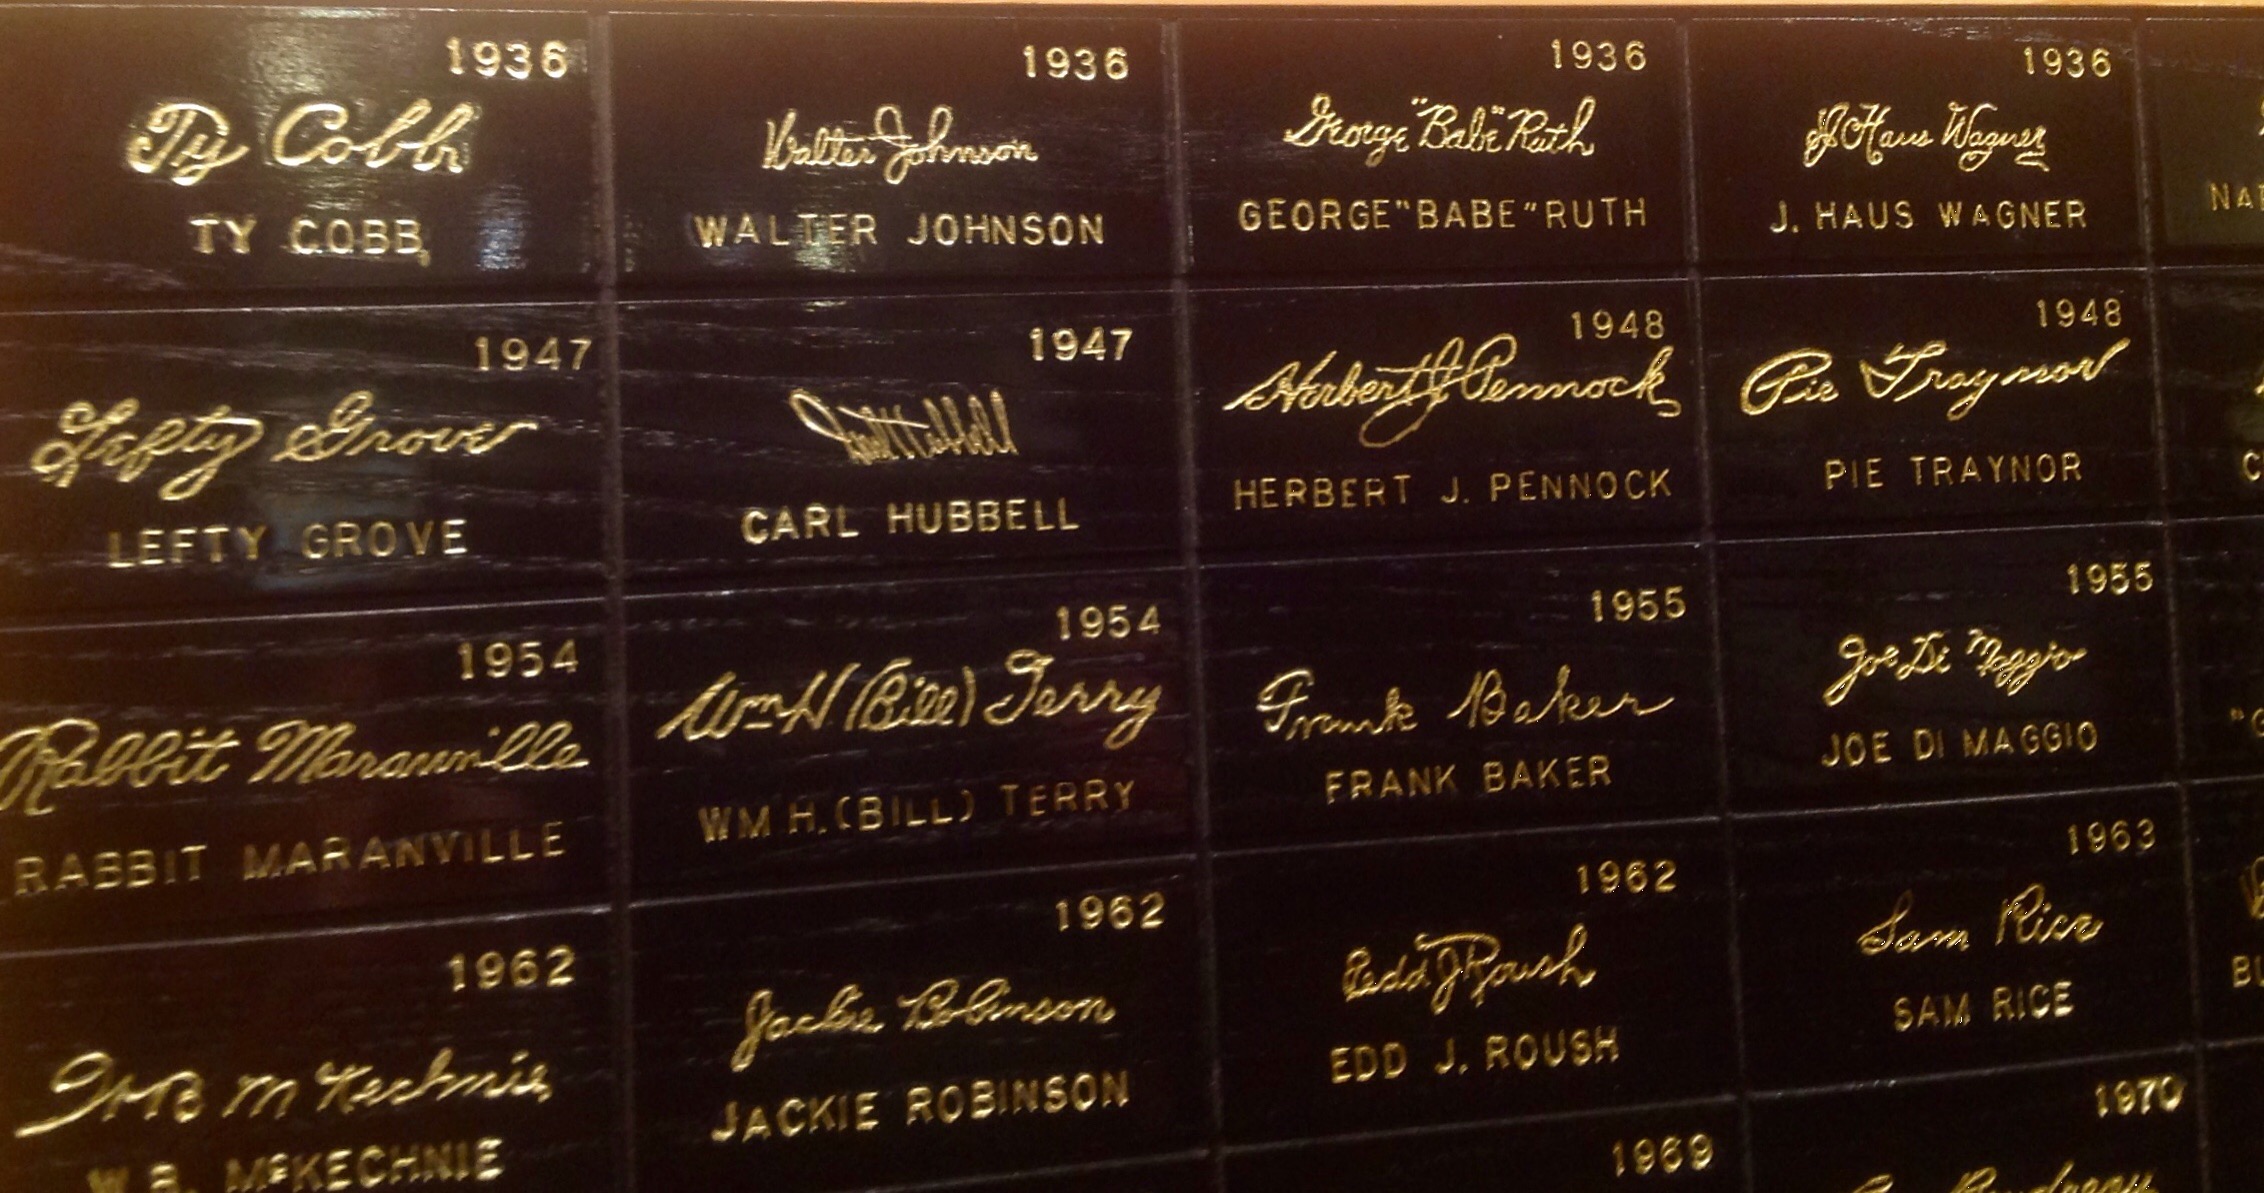 1936 1936 1936 1936
Ty Cobb Walter Johnson George "Babe" Ruth J Haus Wagner
TY COBB WALTER JOHNSON GEORGE "BABE" RUTH J. HAUS WAGNER
1947 1947 1948 1948
Lefty Grove Carl Hubbell Herbert J Pennock Pie Traynor
LEFTY GROVE CARL HUBBELL HERBERT J. PENNOCK PIE TRAYNOR
1954 1954 1955 1955
Rabbit Maranville Wm H (Bill) Terry Frank Baker Joe Di Maggio
RABBIT MARANVILLE WM H. (BILL) TERRY FRANK BAKER JOE DI MAGGIO
1962 1962 1962 1963
W B McKechnie Jackie Robinson Edd J Roush Sam Rice
W. B. McKECHNIE JACKIE ROBINSON EDD J. ROUSH SAM RICE
1969 1970